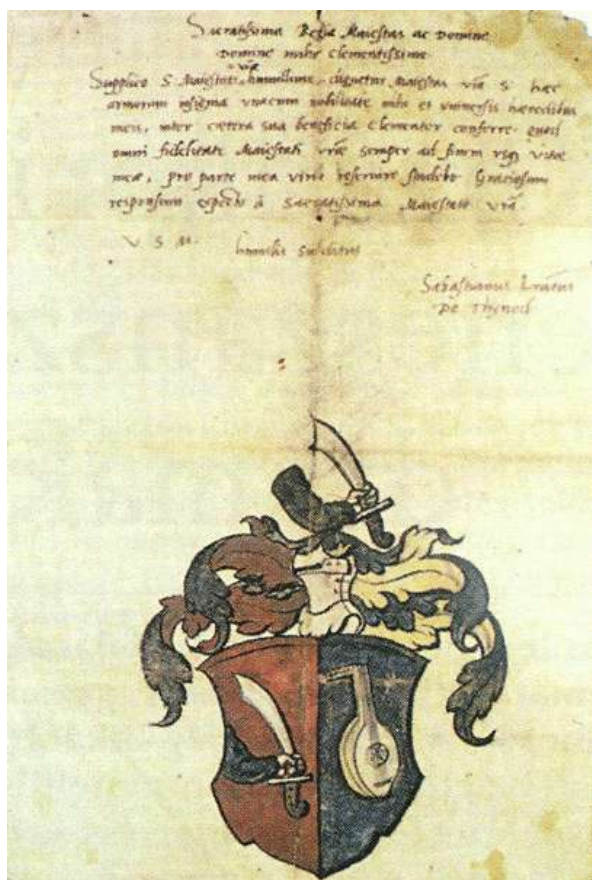 Sacratissima Regia Maiestas ac Domine
Domine mihi Clementissime
vrae
Supplico S. Maiestati humillime, dignetur Maiestas vra S. haec
armorum insignia unacum nobilitate mihi et universis haeredibus
meis, inter caetera sua beneficia Clementer conferre. quod
omni fidelitate Maiestati vrae semper ad finem usq vitae
meae, pro parte mea virili reservire studebo Graciosum
responsum expecto à Sacratissima Maiestate vra
V. S. M.
humilis subditus
Sebastianus
De Thynod